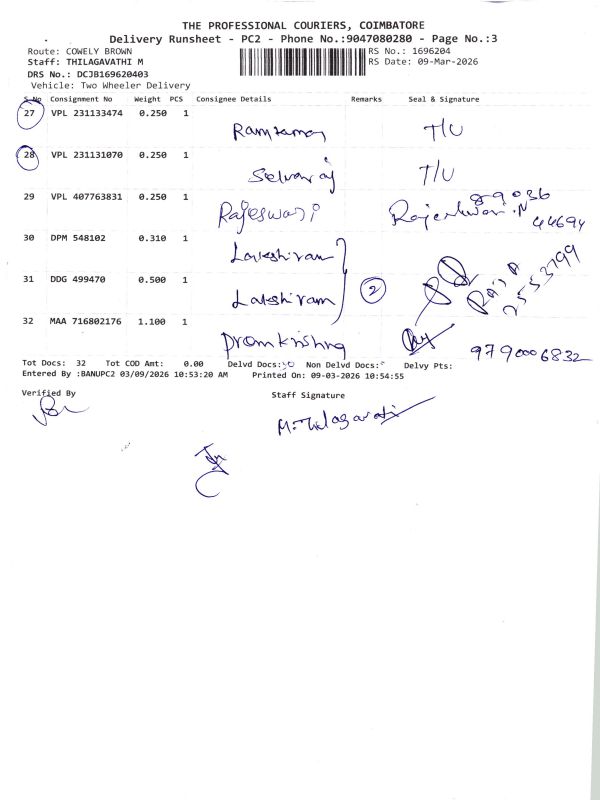 THE PROFESSIONAL COURIERS, COIMBATORE
Delivery Runsheet - PC2 - Phone No.:9047080280 - Page No.:3
Route: COWELY BROWN RS No.: 1696204
Staff: THILAGAVATHI M RS Date: 09-Mar-2026
DRS No.: DCJB169620403
Vehicle: Two Wheeler Delivery
S.No Consignment No Weight PCS Consignee Details Remarks Seal & Signature
27 VPL 231133474 0.250 1
T/U
28 VPL 231131070 0.250 1
Selvaraj T/U
29 VPL 407763831 0.250 1
Rajeswari Rajeshwari.N 89036
44694
30 DPM 548102 0.310 1
Lakshiram
31 DDG 499470 0.500 1 2
Lakshiram
32 MAA 716802176 1.100 1
Premkrishna 9790006832
Tot Docs: 32 Tot COD Amt: 0.00 Delvd Docs: 30 Non Delvd Docs: Delvy Pts:
Entered By :BANUPC2 03/09/2026 10:53:20 AM Printed On: 09-03-2026 10:54:55
Verified By Staff Signature
M.Thilagavathi